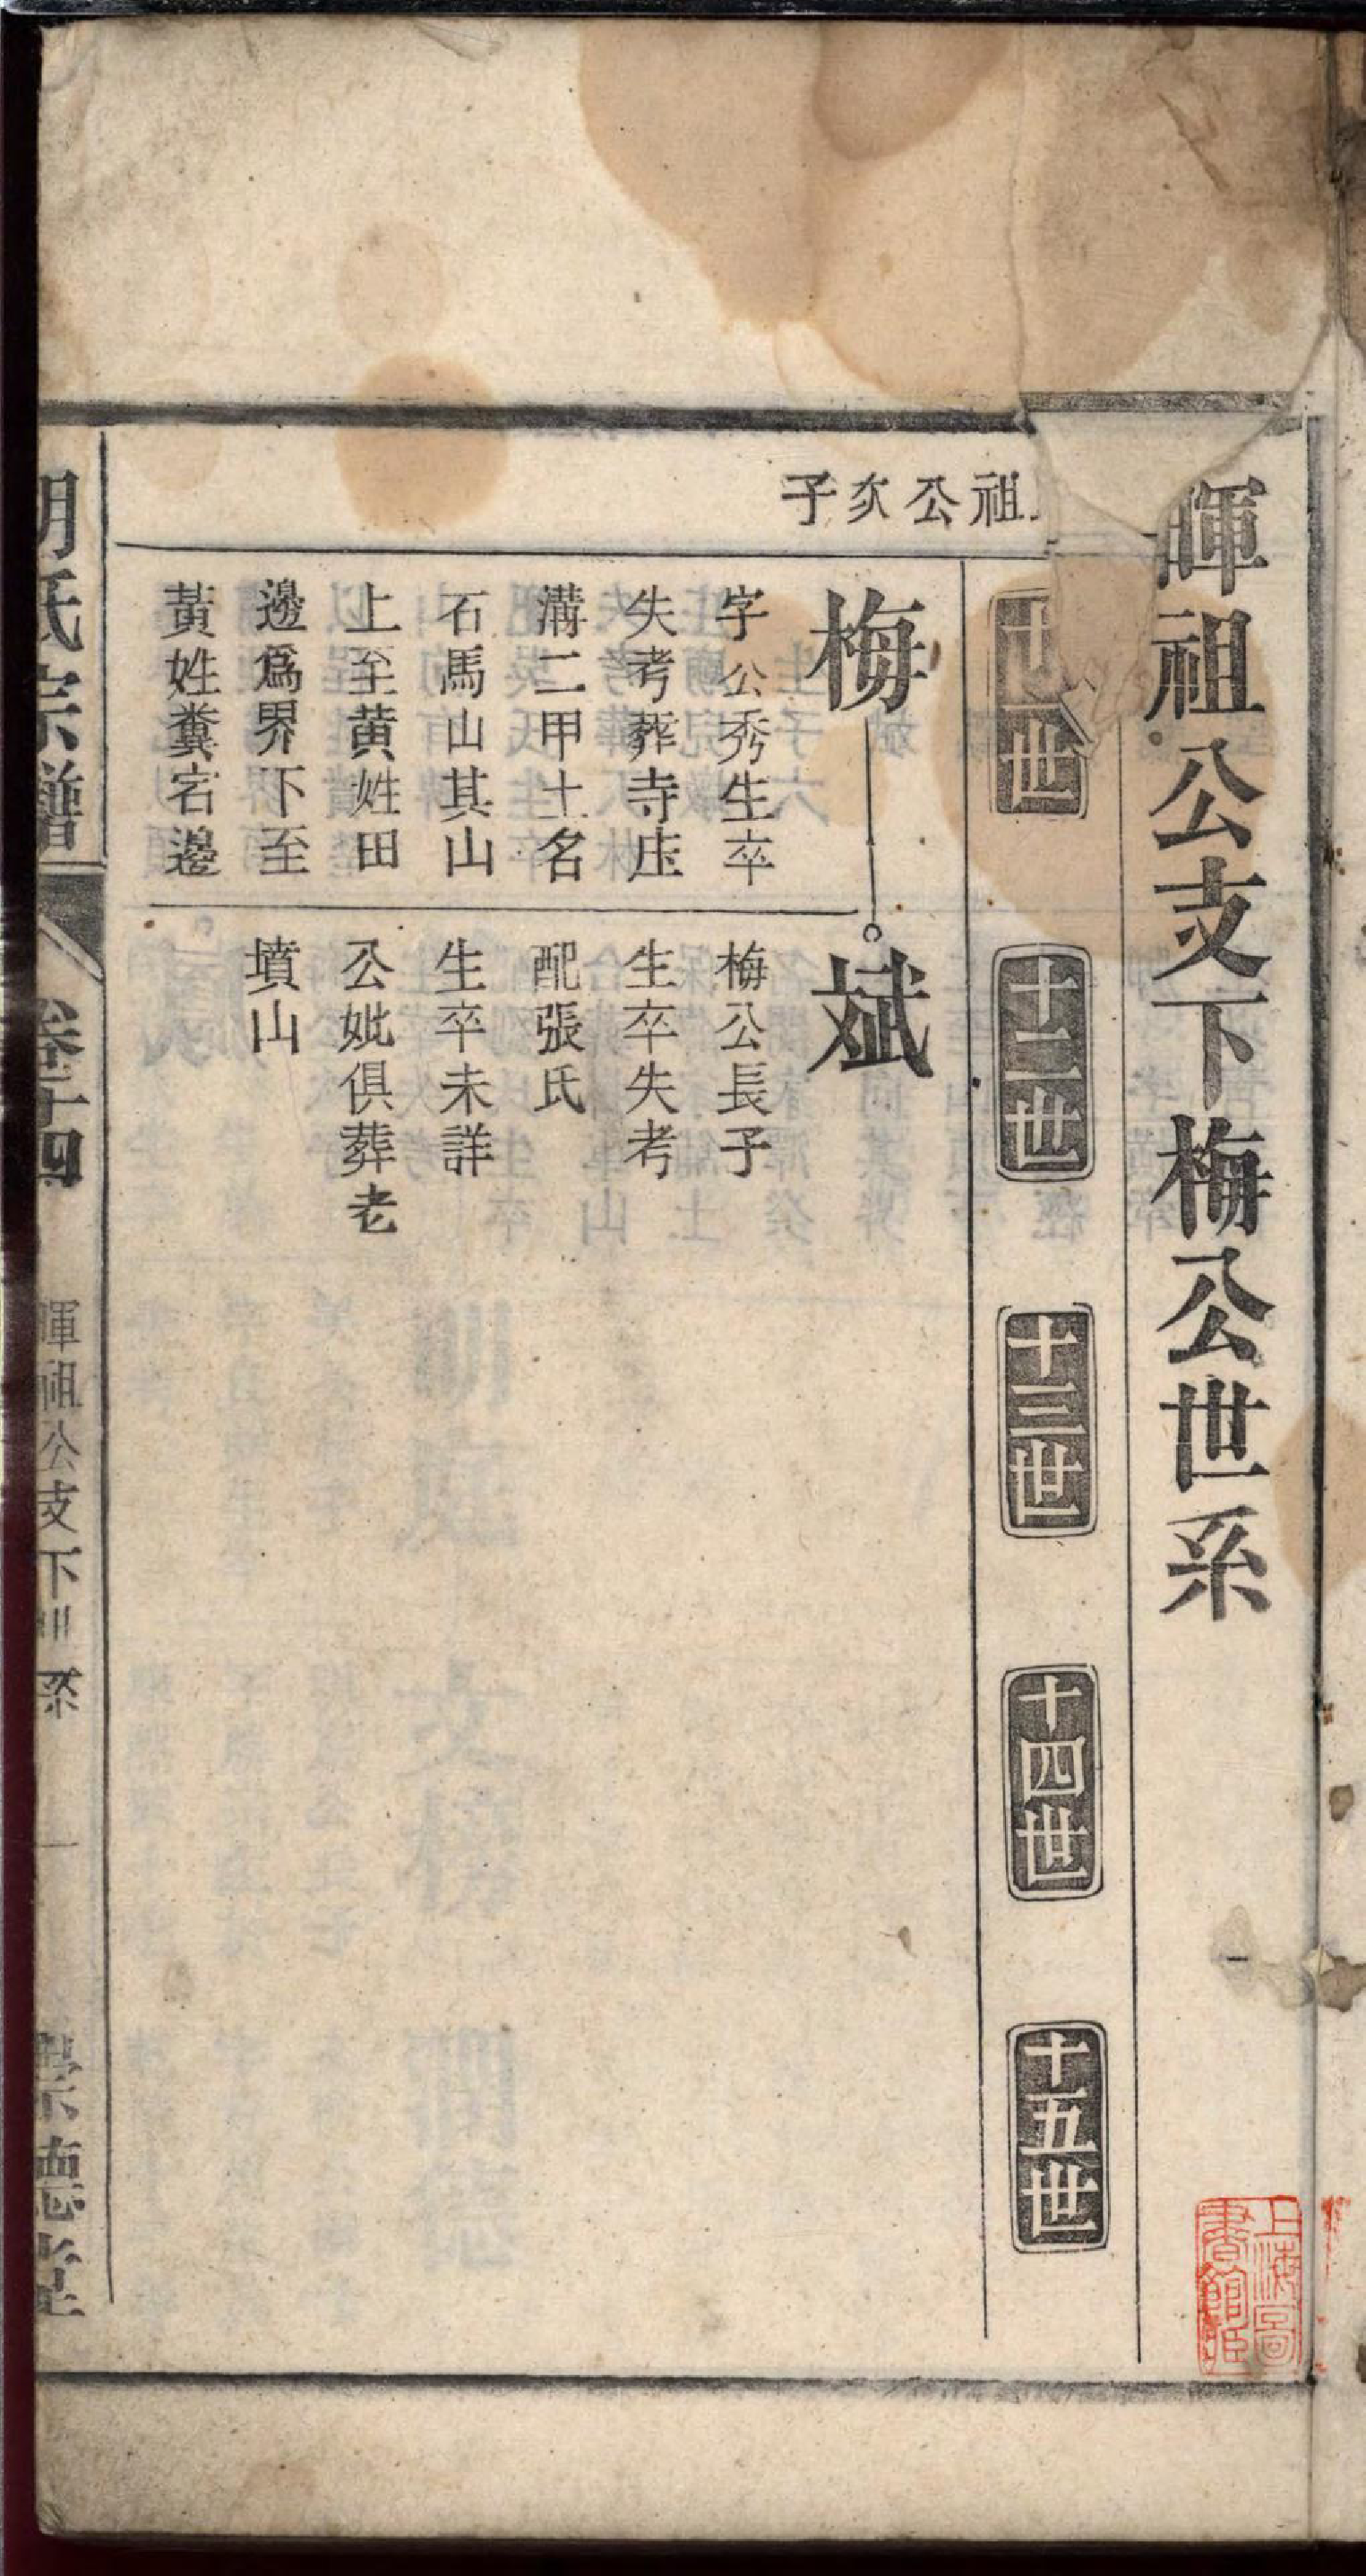 暉祖公支下梅公世系
世
十二世
十三世
十四世
十五世
祖公次子
梅
字公秀生卒
失考葬寺庄
溝二甲土名
石馬山其山
上至黄姓田
邊爲界下至
黃姓糞窖邊
斌
梅公長子
生卒失考
配張氏
生卒未詳
公妣俱葬老
墳山
胡氏宗譜
卷十四
暉祖公支下世系
一
崇德堂
上海圖書館藏